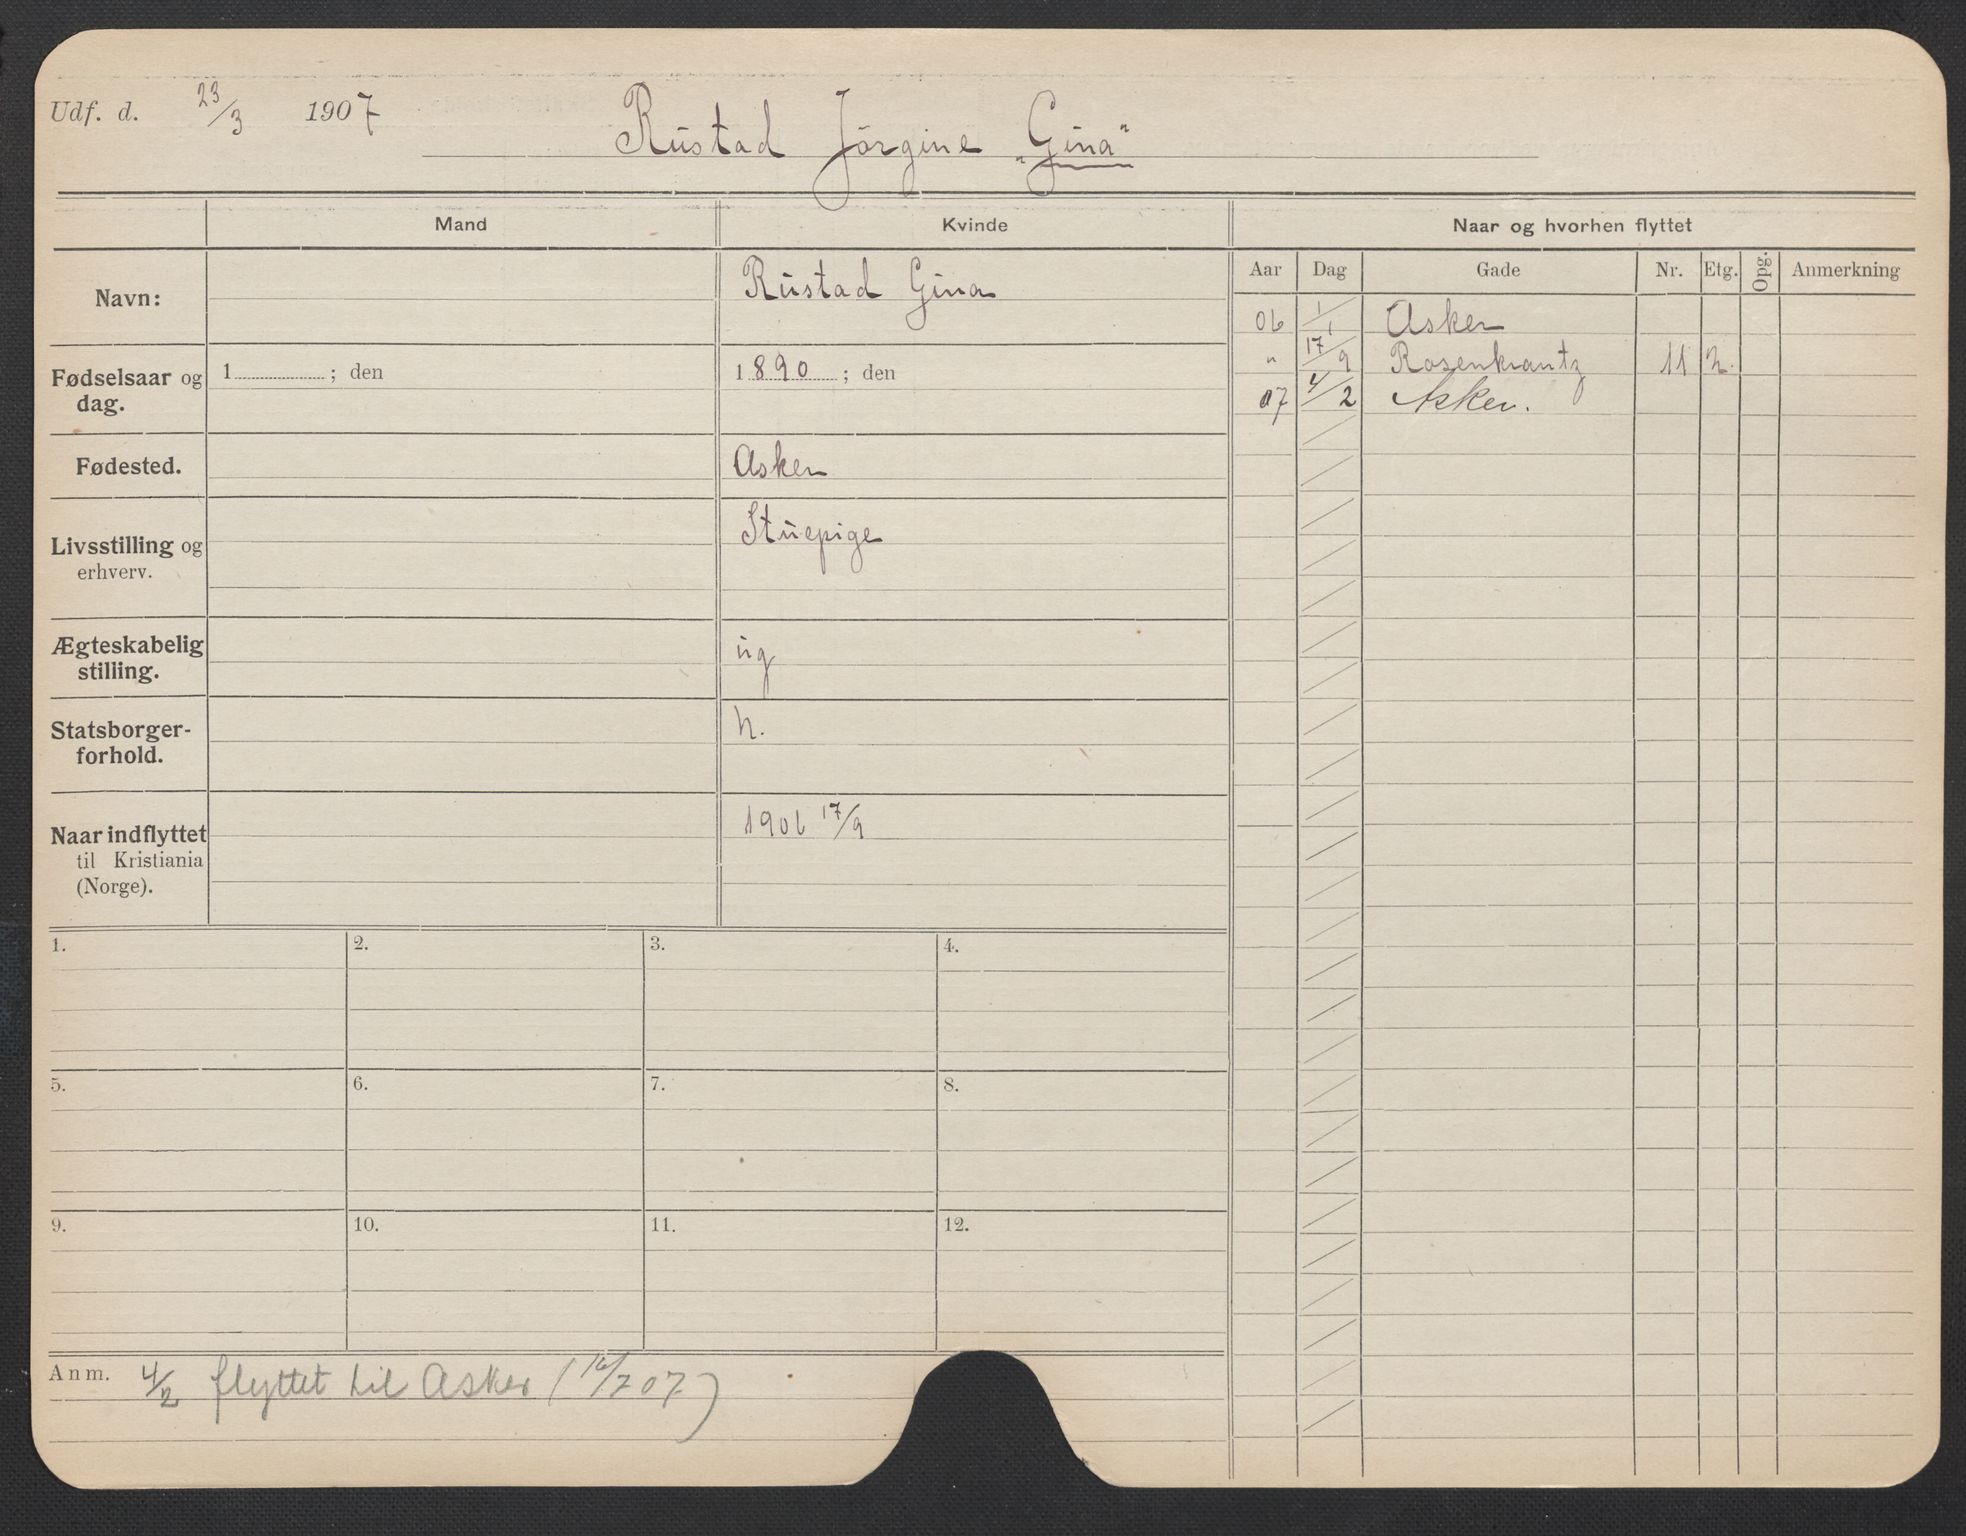 Udf. d. 23/3 1907 Rustad Jörgine "Gina"
Mand Kvinde Naar og hvorhen flyttet
Aar Dag Gade Nr. Etg. Opg. Anmerkning
Navn: Rustad Gina
06 1/1 Asker
" 17/9 Rosenkrantz 11 2.
07 4/2 Asker.
Fødselsaar og dag. 1 ; den 1890 ; den
Fødested. Asker
Livsstilling og erhverv. Stuepige
Ægteskabelig stilling. ug
Statsborgerforhold. n.
Naar indflyttet til Kristiania (Norge). 1906 17/9
1. 2. 3. 4.
5. 6. 7. 8.
9. 10. 11. 12.
Anm. 4/2 flyttet til Asker (16/7 07)